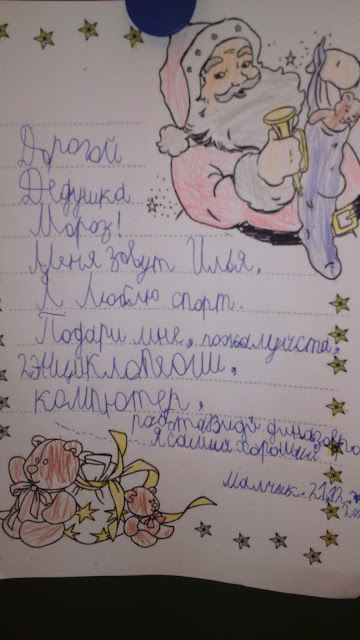 Дорогой
Дедушка
Мороз!
Меня зовут Илья.
Я люблю спорт.
Подари мне, пожалуйста,
энциклопедии,
компютер,
я самый хороший
малчик. 21.12.